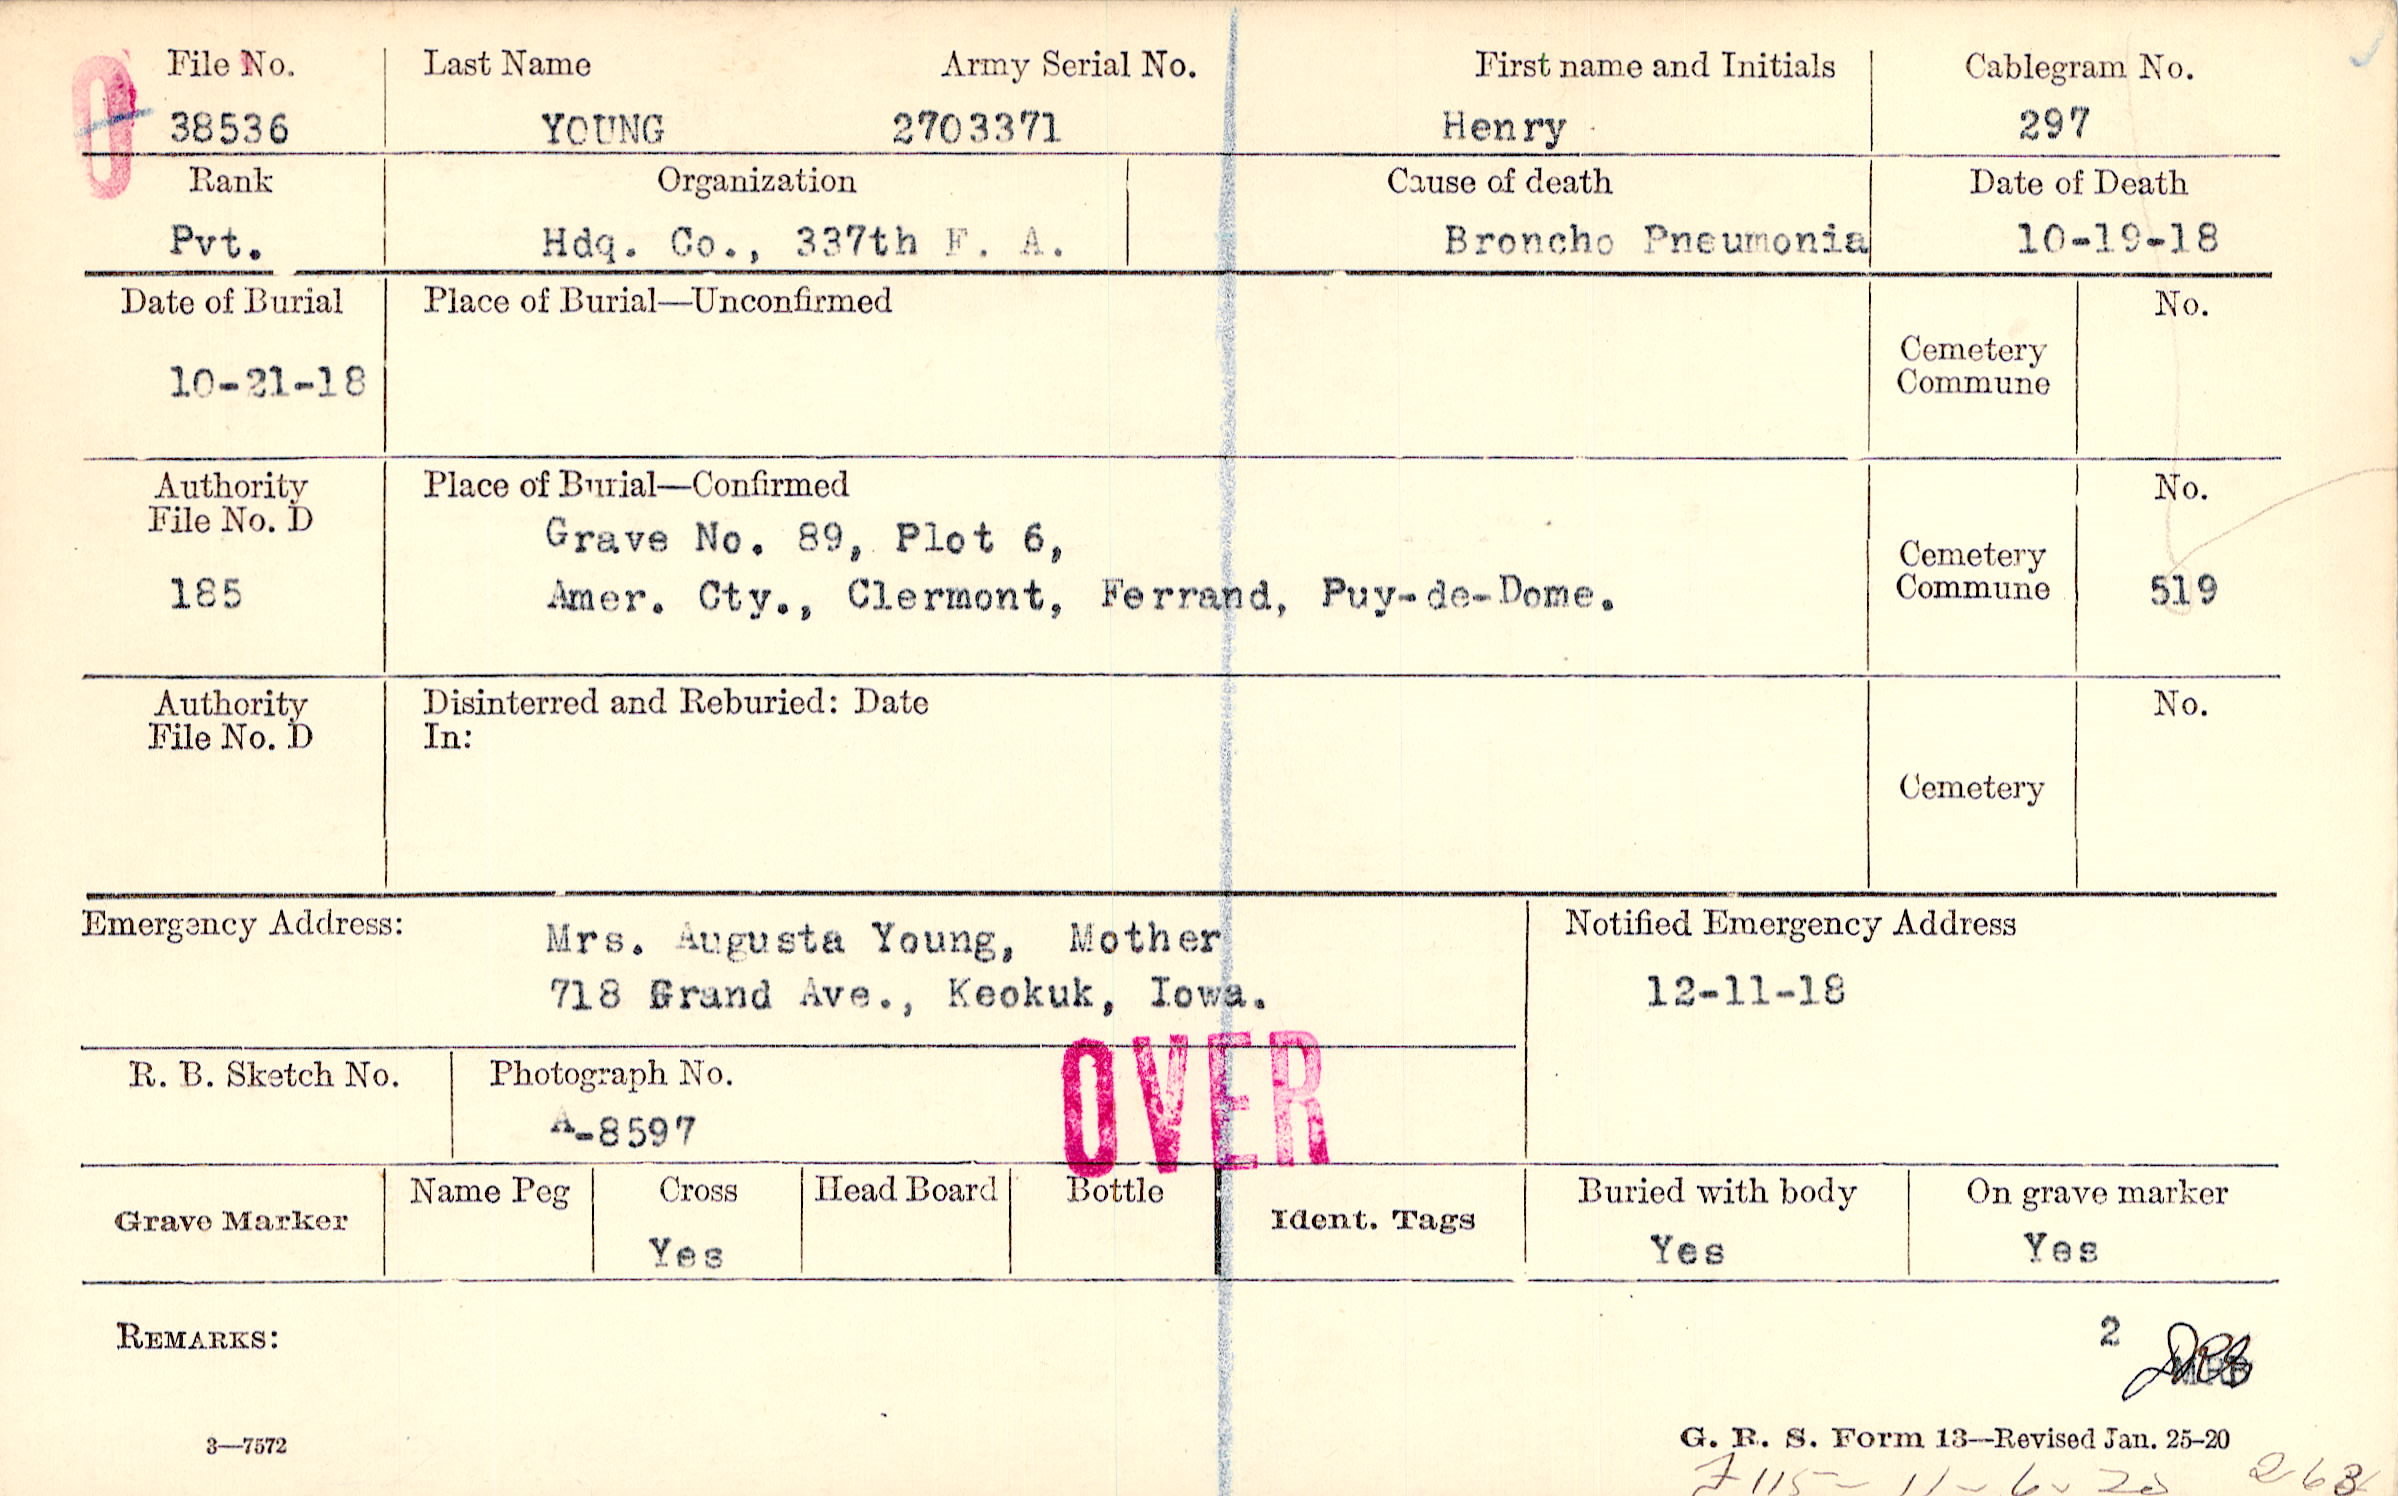 File No. Last Name Army Serial No. First name and Initials Cablegram No.
O 38536 YOUNG 2703371 Henry 297
Rank Organization Cause of death Date of Death
Pvt. Hdq. Co., 337th F. A. Broncho Pneumonia 10-19-18
Date of Burial Place of Burial—Unconfirmed No.
Cemetery
Commune
10-21-18
Authority Place of Burial—Confirmed No.
File No. D
Grave No. 89, Plot 6,
Cemetery
185 Amer. Cty., Clermont, Ferrand, Puy-de-Dome. Commune 519
Authority Disinterred and Reburied: Date No.
File No. D In:
Cemetery
Emergency Address: Notified Emergency Address
Mrs. Augusta Young, Mother
718 Grand Ave., Keokuk, Iowa. 12-11-18
OVER
R. B. Sketch No. Photograph No.
A-8597
Name Peg Cross Head Board Bottle Buried with body On grave marker
Grave Marker Ident. Tags
Yes Yes Yes
REMARKS: 2
3—7572 G. R. S. Form 13—Revised Jan. 25-20
115- 11-6-20 263